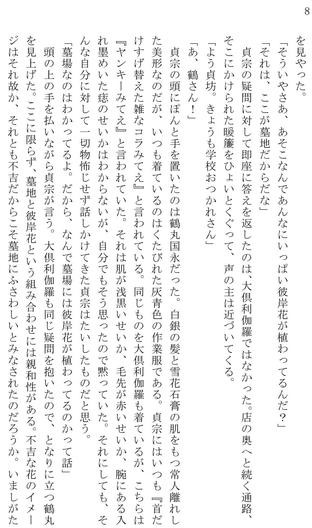 8
を見やった。
「そういやさあ、あそこなんであんなにいっぱい彼岸花が植わってるんだ？」
「それは、ここが墓地だからだな」
貞宗の疑問に対して即座に答えを返したのは、大倶利伽羅ではなかった。店の奥へと続く通路、
そこにかけられた暖簾をひょいとくぐって、声の主は近づいてくる。
「よう貞坊。きょうも学校おつかれさん」
「あ、鶴さん！」
貞宗の頭にぽんと手を置いたのは鶴丸国永だった。白銀の髪と雪花石膏の肌をもつ常人離れし
た美形なのだが、いつも着ているのはくたびれた灰青色の作業服で、貞宗にはいつも『首だ
けすげ替えた雑なコラみてえ』と言われている。同じものを大倶利伽羅も着ているが、こちらは
『ヤンキーみてえ』と言われていた。それは肌が浅黒いせいか、毛先が赤いせいか、腕にある入
れ墨めいた痣のせいかはわからないが、自分でもそう思ったので黙っていた。それにしても、そ
んな自分に対して一切物怖じせず話しかけてきた貞宗はたいしたものだと思う。
「墓場なのはわかってるよ。だから、なんで墓場には彼岸花が植わってるのかって話」
頭の上の手を払いながら貞宗が言う。大倶利伽羅も同じ疑問を抱いたので、となりに立つ鶴丸
を見上げた。ここに限らず、墓地と彼岸花という組み合わせには親和性がある。不吉な花のイメー
ジはそれ故か、それとも不吉だからこそ墓地にふさわしいとみなされたのだろうか。いましがた